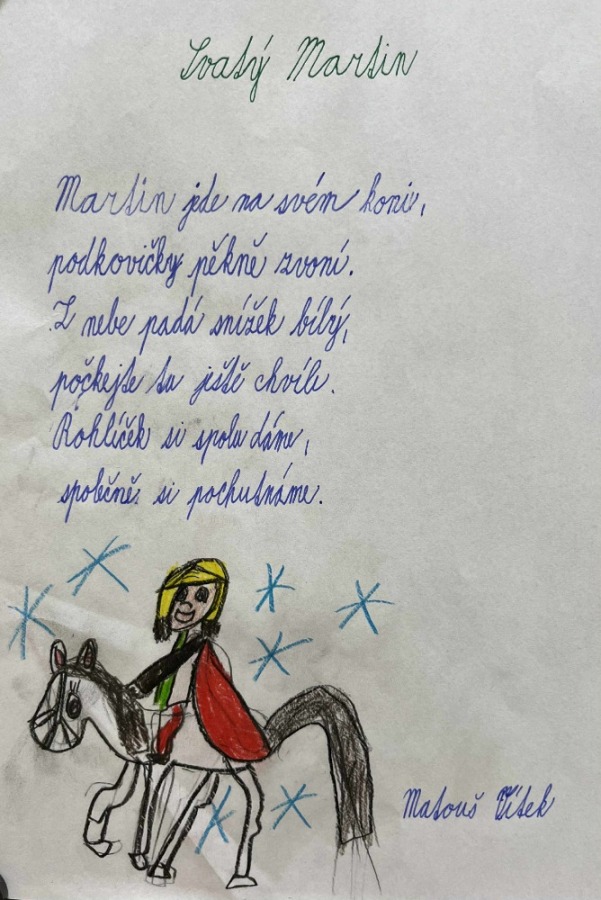 Svatý Martin
Martin jde na svém koni,
podkovičky pěkně zvoní.
Z nebe padá snížek bílý,
počkejte tu ještě chvíli.
Rohlíček si spolu dáme,
společně si pochutnáme.
Matouš Vítek